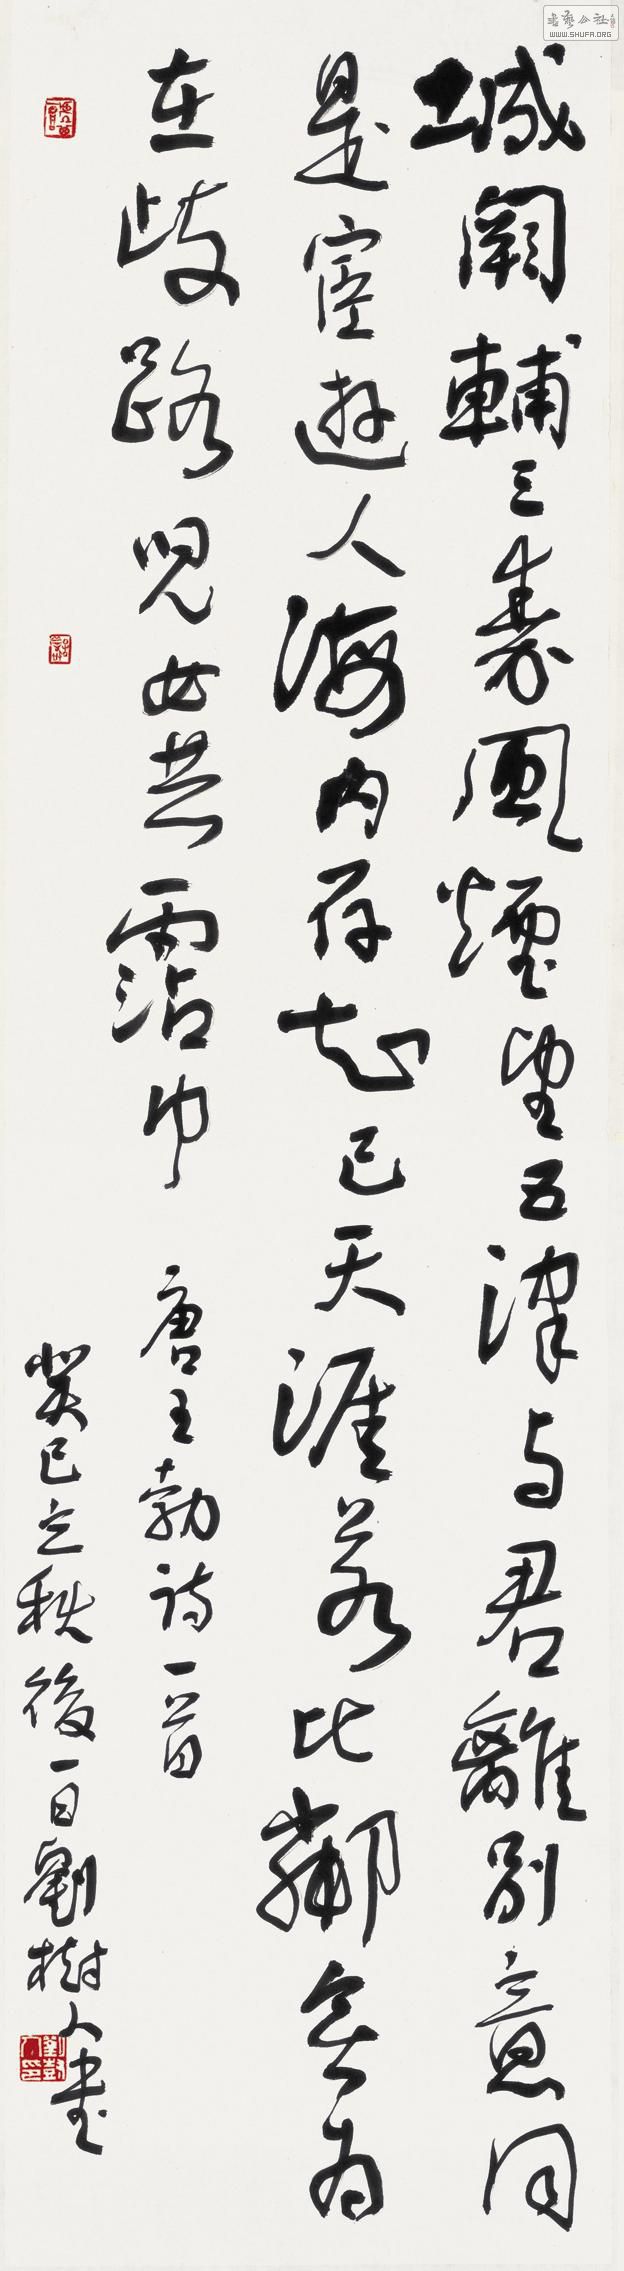 城闕輔三秦風煙望五津与君離別意同
是宦遊人海内存知己天涯若比鄰無為
在歧路児女共霑巾 唐王勃詩一首
癸巳立秋後一日劉樹人書
書藝公社
WWW.SHUFA.ORG